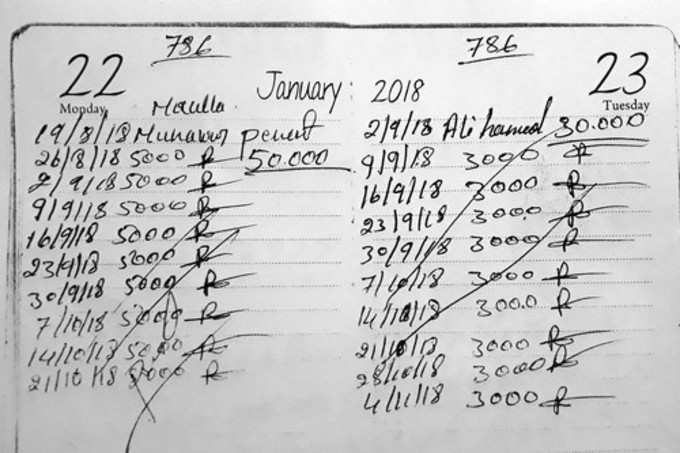 786
22
Monday
January
Maulla
19/8/18 Munawar
50.000
26/8/18 5000 R
2/9/18 5000 R
9/9/18 5000 R
16/9/18 5000 R
23/9/18 5000 R
30/9/18 5000 R
7/10/18 5000 R
14/10/18 5000 R
21/10/18 5000 R
786
2018
23
Tuesday
2/9/18 Ali hamed 30.000
9/9/18 3000 R
16/9/18 3000 R
23/9/18 3000 R
30/9/18 3000 R
7/10/18 3000 R
14/10/18 3000 R
21/10/18 3000 R
28/10/18 3000 R
4/11/18 3000 R